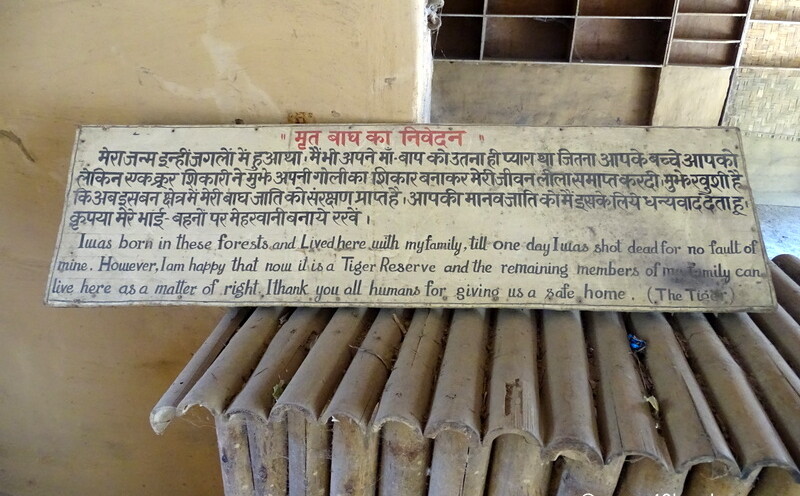 " मृत बाघ का निवेदन "
मेरा जन्म इन्हीं जगलों में हुआ था। मैं भी अपने माँ-बाप को उतना ही प्यारा था जितना आपके बच्चे आपको
लेकिन एक क्रूर शिकारी ने मुझे अपनी गोली का शिकार बनाकर मेरी जीवन लीला समाप्त कर दी। मुझे खुशी है
कि अब इस वन क्षेत्र में मेरी बाघ जाति को संरक्षण प्राप्त है। आपकी मानव जाति को मैं इसके लिये धन्यवाद देता हू।
कृपया मेरे भाई-बहनों पर मेहरवानी बनाये रखें।
I was born in these forests and Lived here with my family, till one day I was shot dead for no fault of
mine. However, I am happy that now it is a Tiger Reserve and the remaining members of my family can
live here as a matter of right. I thank you all humans for giving us a safe home. (The Tiger)